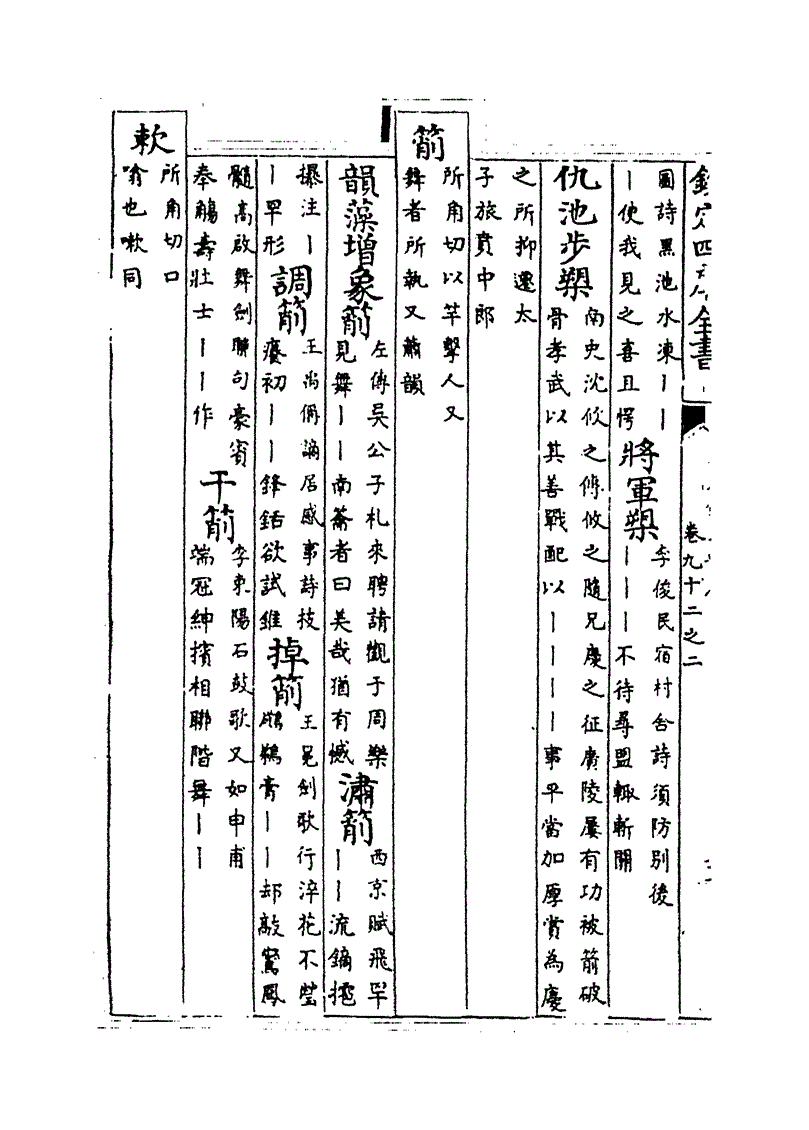 欽定四庫全書
卷九十二之二
圖詩黑池水凍｜｜
｜使我見之喜且愕
將軍槊
李俊民宿村舍詩須防別後
｜｜｜不待尋盟輙斬關
仇池步槊
南史沈攸之傳攸之隨兄慶之征廣陵屢有功被箭破
骨孝武以其善戰配以｜｜｜｜事平當加厚賞為慶
之所抑遷太
子旅賁中郎
箾
所角切以竿擊人又
舞者所執又蕭韻
韻藻增象箾
左傳吳公子札來聘請觀于周樂
見舞｜｜南籥者曰美哉猶有憾
㴋箾
西京賦飛罕
｜｜流鏑
攥注｜
｜罕形
調箾
王尚絅謫居感事詩技
癢初｜｜鋒銛欲試錐
掉箾
王邑劍歌行淬花不瑩
鵜膏｜｜却敲鸞鳳
髓高啟舞劍聯句豪賓
奉觴壽壯士｜｜作
干箾
李東陽石鼓歌又如申甫
端冠紳擯相聯階舞｜｜
欶
所角切口
噏也嗽同